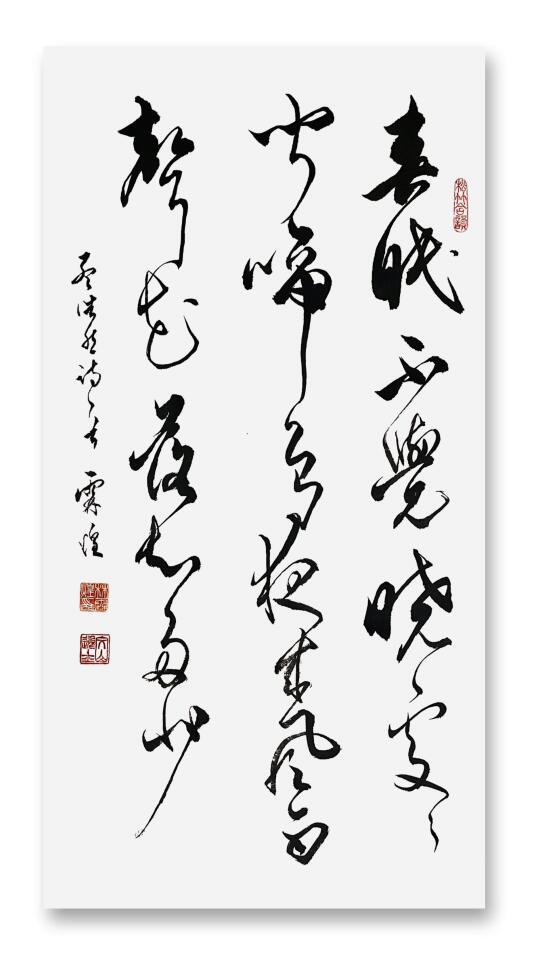 春眠不覺曉處々
聞啼鳥夜来風雨
聲花落知多少
孟浩然诗一首 霖煌